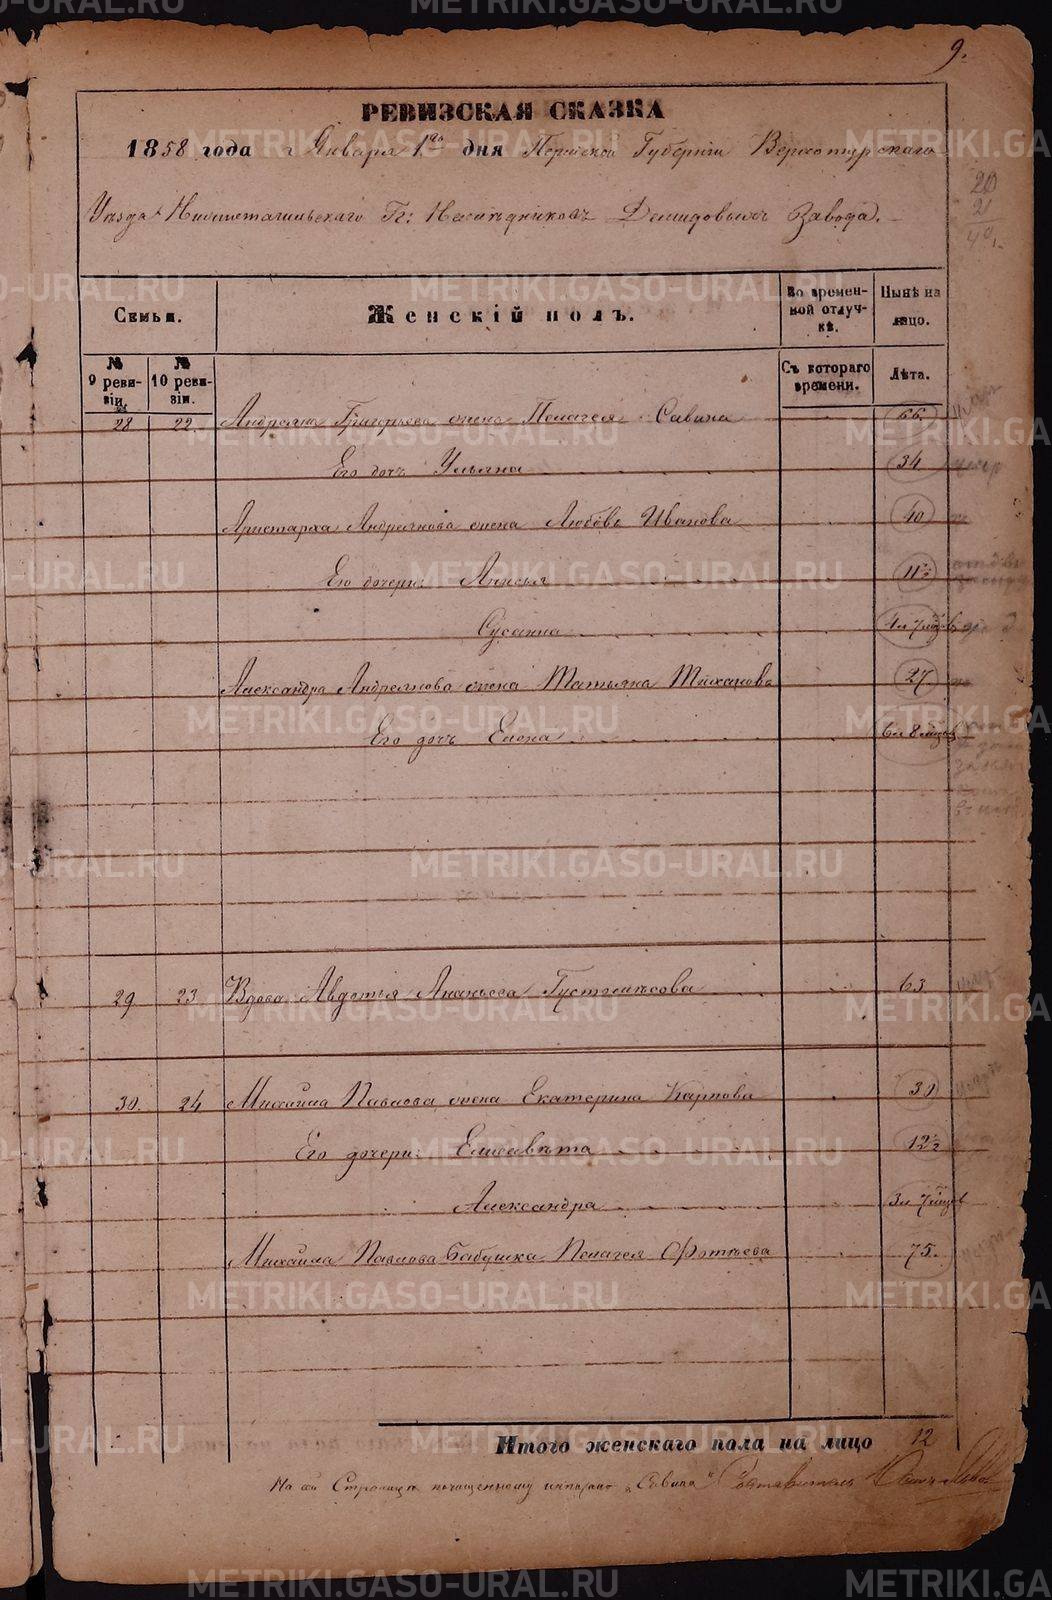 9.
РЕВИЗСКАЯ СКАЗКА
1858 года Января 1го дня Пермской Губерніи Верхотурскаго
Уѣзда Нижнетагильскаго Гг: Наслѣдниковъ Демидовыхъ Завода.
20
2
40
Семьи.
Женскій полъ.
Во времен-
ной отлуч-
кѣ.
Нынѣ на
лицо.
№
9 реви-
зіи.
№
10 реви-
зіи.
Съ котораго
времени.
Лѣта.
28 22 Андреяна Григорьева жена Пелагея Савина 66.
Его дочь Ульяна 34
Аристарха Андреянова жена Любовь Иванова 40
Его дочери: Анисья 11½
Сусанна 4л 7мѣцов
Александра Андреянова жена Татьяна Тиханова 27.
Его дочь Елена 6л 8мѣцов
29 23 Вдова Авдотья Ананьева 63
30. 24 Михаила Павлова жена Екатерина Карпова 30
Его дочери: Елисавѣта 12½
Александра 3л 7мѣцов
Михаила Павлова бабушка Пелагея Фотѣева 75.
Итого женскаго пола на лицо 12
На сей Страницѣ почищенному написано „Савина“
METRIKI.GASO-URAL.RU